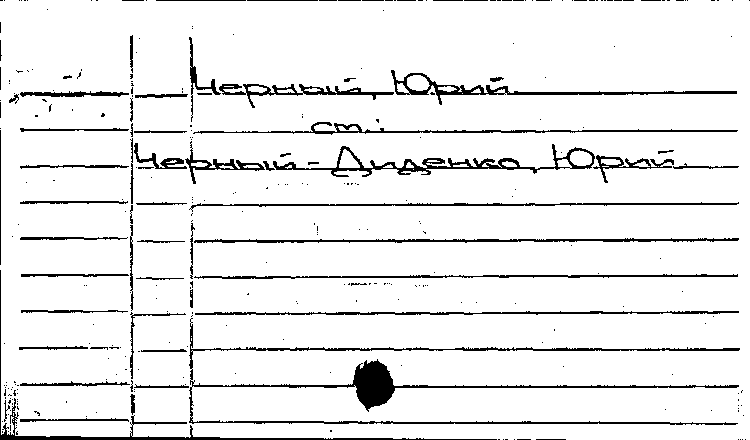 Черный, Юрий
ст.:
Черный-Диденко, Юрий